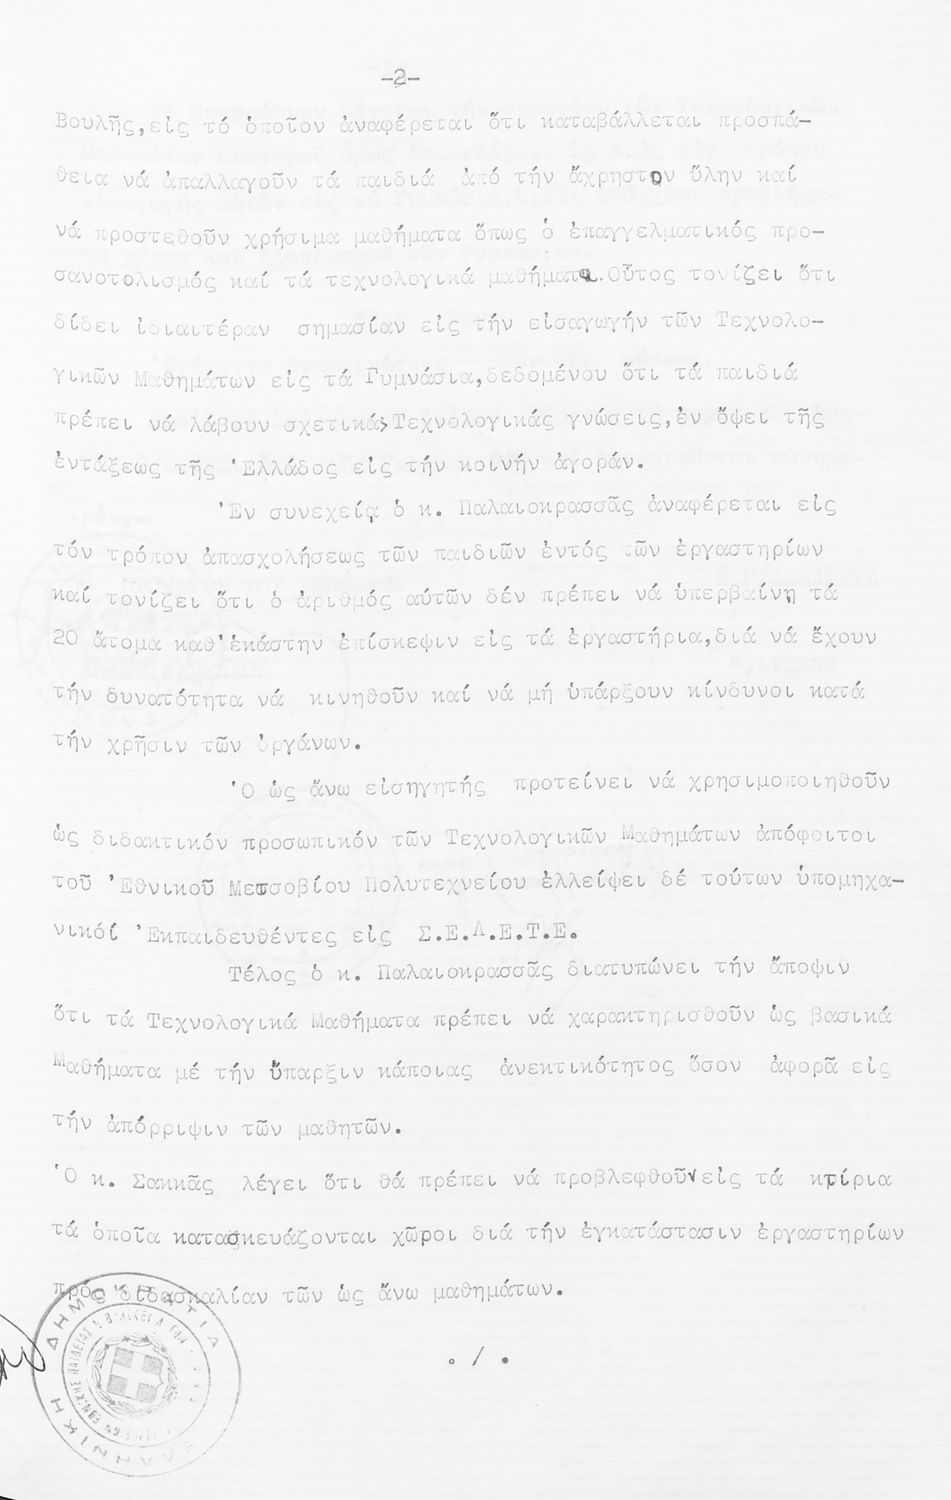 -2-
Βουλῆς,εἰς τό ὁποῖον ἀναφέρεται ὅτι καταβάλλεται προσπά-
θεια νά ἀπαλλαγοῦν τά παιδιά ἀπό τήν ἄχρηστον ὕλην καί
νά προστεθοῦν χρήσιμα μαθήματα ὅπως ὁ ἐπαγγελματικός προ-
σανατολισμός καί τά τεχνολογικά μαθήματα.Οὗτος τονίζει ὅτι
δίδει ἰδιαιτέραν σημασίαν εἰς τήν εἰσαγωγήν τῶν Τεχνολο-
γικῶν Μαθημάτων εἰς τά Γυμνάσια,δεδομένου ὅτι τά παιδιά
πρέπει νά λάβουν σχετικά> Τεχνολογικάς γνώσεις,ἐν ὄψει τῆς
ἐντάξεως τῆς Ἑλλάδος εἰς τήν κοινήν ἀγοράν.
Ἐν συνεχείᾳ ὁ κ. Παλαιοκρασσᾶς ἀναφέρεται εἰς
τόν τρόπον ἀπασχολήσεως τῶν παιδιῶν ἐντός τῶν ἐργαστηρίων
καί τονίζει ὅτι ὁ ἀριθμός αὐτῶν δέν πρέπει νά ὑπερβαίνῃ τά
20 ἄτομα καθ'ἑκάστην ἐπίσκεψιν εἰς τά ἐργαστήρια,διά νά ἔχουν
τήν δυνατότητα νά κινηθοῦν καί νά μή ὑπάρξουν κίνδυνοι κατά
τήν χρῆσιν τῶν ὀργάνων.
Ὁ ὡς ἄνω εἰσηγητής προτείνει νά χρησιμοποιηθοῦν
ὡς διδακτικόν προσωπικόν τῶν Τεχνολογικῶν Μαθημάτων ἀπόφοιτοι
τοῦ Ἐθνικοῦ Μετσοβίου Πολυτεχνείου ἐλλείψει δέ τούτων ὑπομηχα-
νικοί Ἐκπαιδευθέντες εἰς Σ.Ε.Λ.Ε.Τ.Ε.
Τέλος ὁ κ. Παλαιοκρασσᾶς διατυπώνει τήν ἄποψιν
ὅτι τά Τεχνολογικά Μαθήματα πρέπει νά χαρακτηρισθοῦν ὡς βασικά
Μαθήματα μέ τήν ὕπαρξιν κάποιας ἀνεκτικότητος ὅσον ἀφορᾶ εἰς
τήν ἀπόρριψιν τῶν μαθητῶν.
Ὁ κ. Σακκᾶς λέγει ὅτι θά πρέπει νά προβλεφθοῦν εἰς τά κτίρια
τά ὁποῖα κατασκευάζονται χῶροι διά τήν ἐγκατάστασιν ἐργαστηρίων
πρός διδασκαλίαν τῶν ὡς ἄνω μαθημάτων.
./.
ΕΛΛΗΝΙΚΗ ΔΗΜΟΚΡΑΤΙΑ